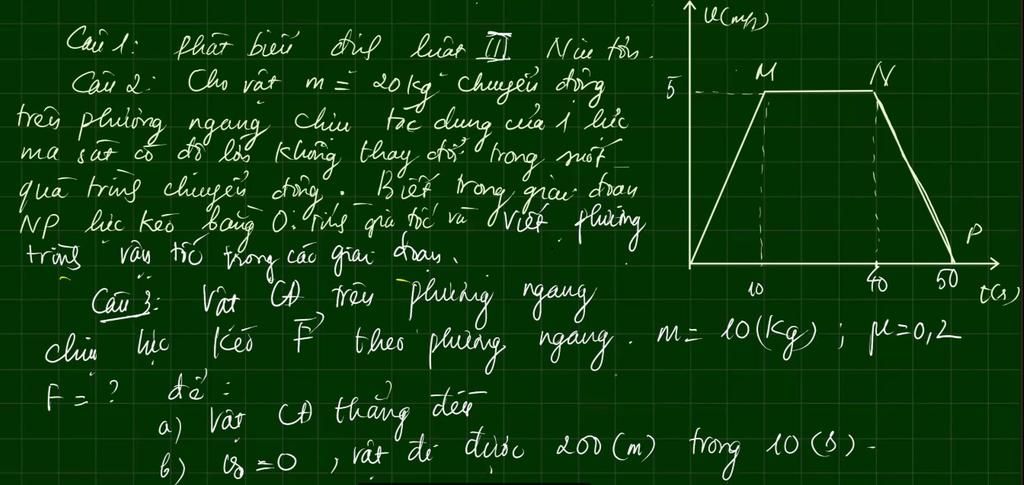 Câu 1: phát biểu định luật III Niu tơn.
Câu 2: Cho vật m = 20kg chuyển động
trên phương ngang chịu tác dụng của 1 lực
ma sát có độ lớn không thay đổi trong suốt
quá trình chuyển động. Biết trong giai đoạn
NP lực kéo bằng 0. Tính gia tốc và viết phương
trình vận tốc trong các giai đoạn.
Câu 3: Vật CĐ trên phương ngang
chịu lực kéo F theo phương ngang. m = 10(kg); μ=0,2
F = ? để:
a) vật CĐ thẳng đều
b) v₀ = 0, vật đi được 200(m) trong 10(s).
v(m/s)
M N
5
P
10 40 50 t(s)